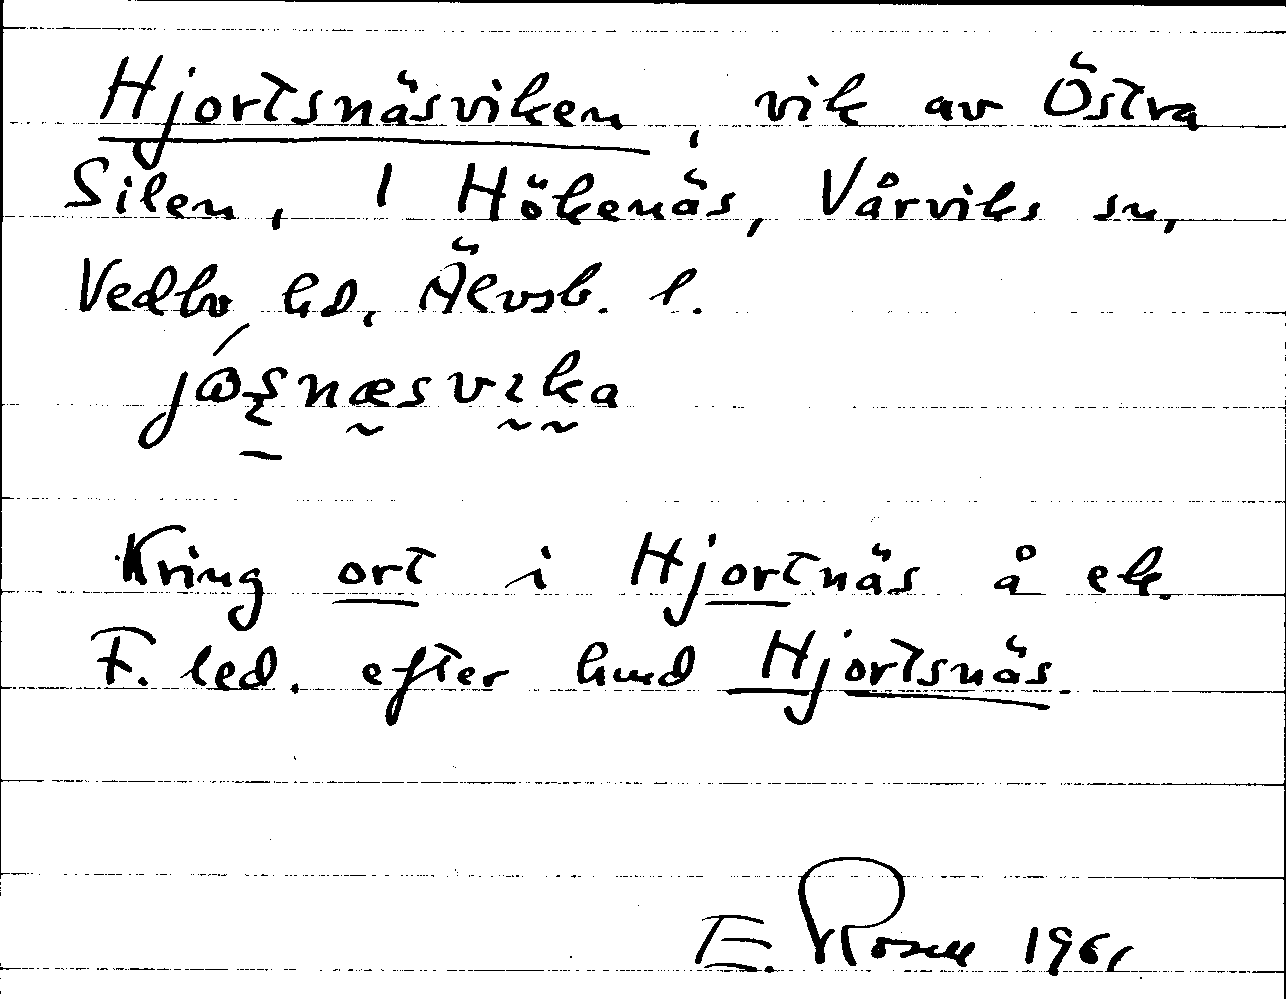 Hjortsnäsviken, vik av Östra
Silen, 1 Hökenäs, Vårviks sn,
Vedbo hd, Älvsb. l.
Kring ort i Hjortnäs å ek.
F. led. efter hmd Hjortsnäs.
E. Rosell 1961